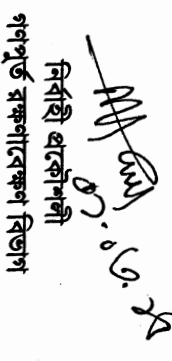 নির্বাহী প্রকৌশলী
গণপূর্ত রক্ষণাবেক্ষণ বিভাগ